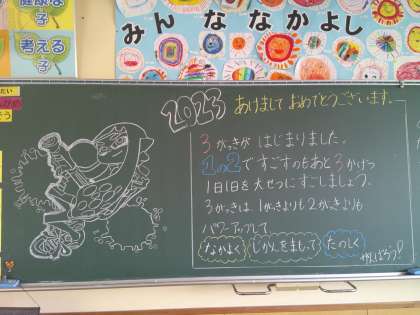 健康な子
考える子
みんななかよし
2023 あけまして おめでとうございます。
3がっきが はじまりました。
1の2ですごすのもあと3かげつ
1日1日を大せつにすごしましょう。
3がっきは、1がっきよりも2がっきよりも
パワーアップして
なかよく じかんをまもって たのしく
がんばろう!